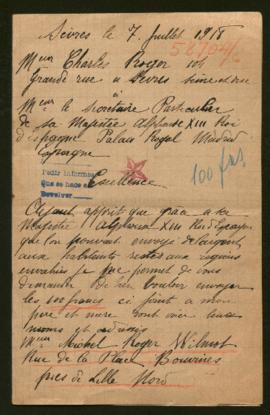 Sèvres le 7 Juillet 1918
56704/6
Mr Charles Roger 101
Grande rue à Sèvres Seine et Oise
à
Mr le Secretaire Particulier
de sa Majestée Alphonse XIII Roi
d'espagne Palais Royal Madrid
Espagne
Pedir informes
Que se hace en
Devolver
Excellence
100 frs
Ayant apprit que grace a sa
Majestée Alphonse XIII Roi d'Espagne
que l'on pouvait envoyé de l'argent
aux habitants restés aux régions
envahies je me permet de vous
demander De bien vouloir envoyer
les 100 francs ci joint a mon
père et mère dont voici leurs
noms et adresses
Mr Michel Roger Wibaut
Rue de la Place Bouvines
près de Lille Nord